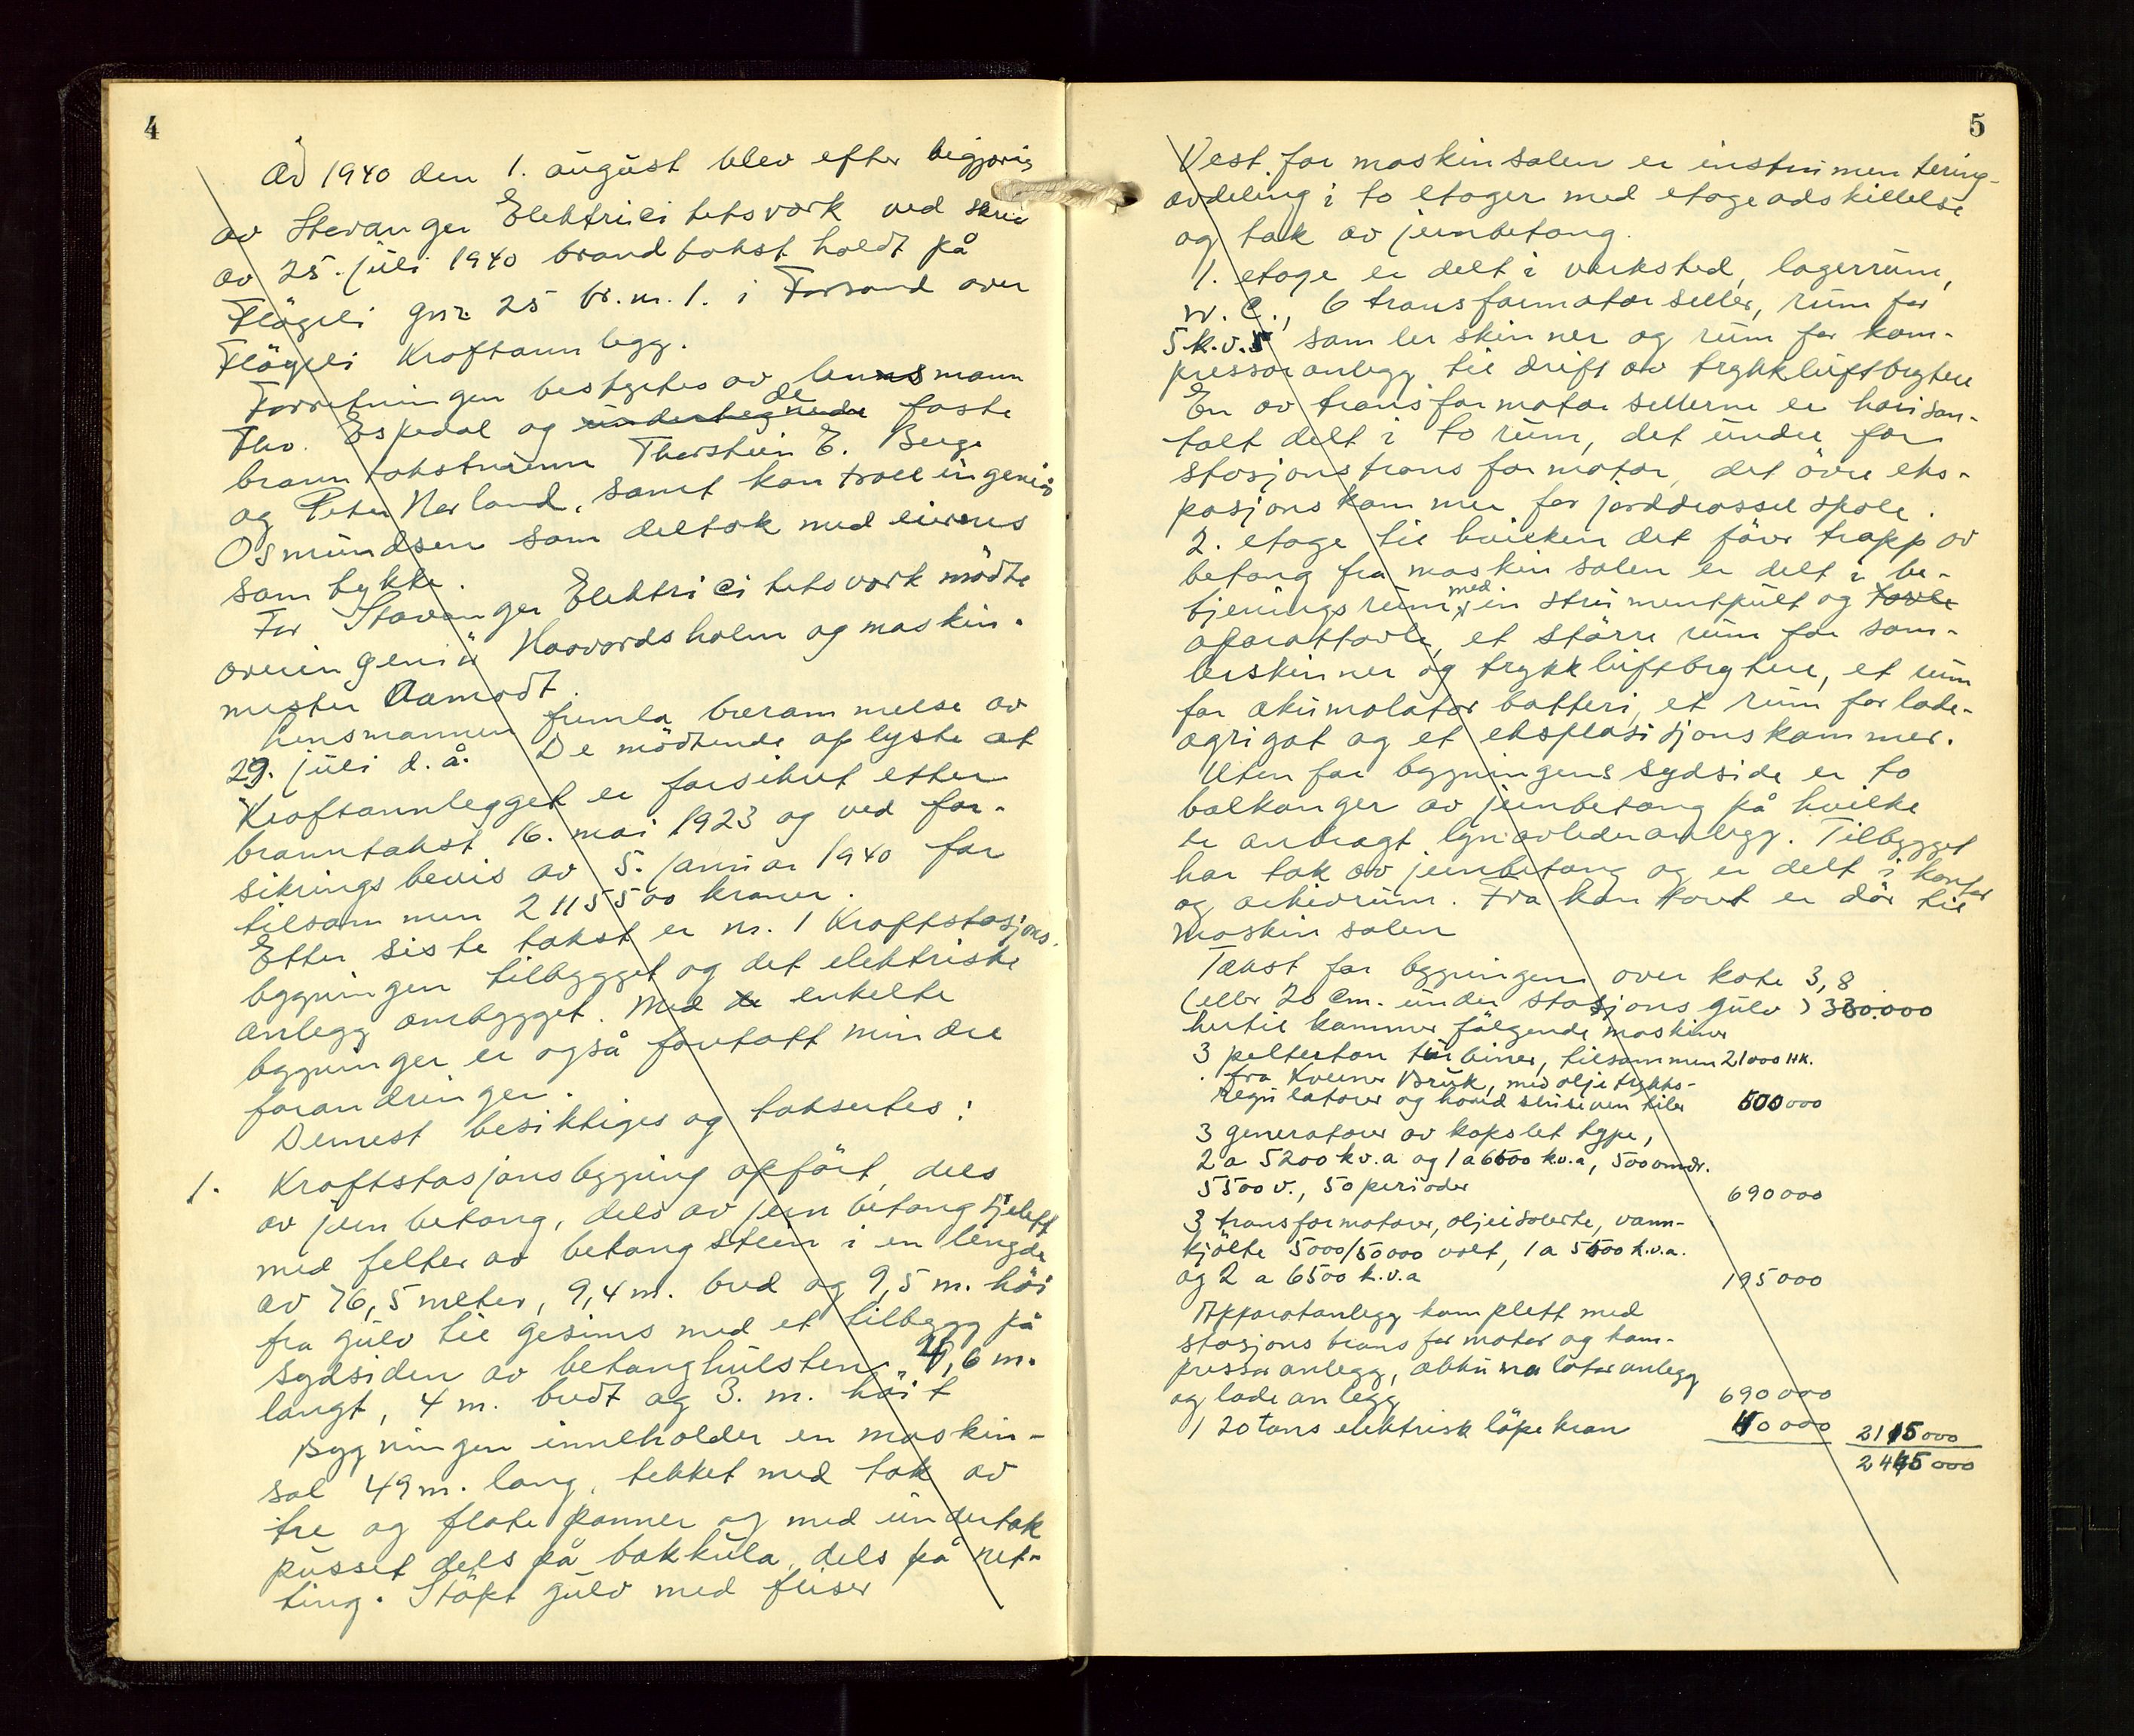 4
År 1940 den 1. august blev efter begjæring
av Stavanger Elektricitetsverk ved skriv
av 25. juli 1940 brandtakst holdt på
Flögeli gnr. 25 br. nr. 1. i Forsand over
Flögeli Kraftannlegg.
Forretningen bestyrtes av lensmann
Thv. Espedal og undertegnede de faste
branntakstmenn Thorstein E. Berge
og Peter Nerland, samt kontrollingeniör
Osmundsen som deltok med eierens
samtykke.
For Stavanger Elektricitetsverk mödte
overingeniör Haavardsholm og maskin-
mester Aamodt.
Lensmannen fremla berammelse av
29. juli d. å. De mödtende oplyste at
Kraftannlegget er forsikret etter
branntakst 16. mai 1923 og ved for-
sikringsbevis av 5. januar 1940 for
tilsammen 2115500 kroner.
Etter siste takst er nr. 1 Kraftstasjons-
bygningen tilbygget og det elektriske
anlegg ombygget. Med de enkelte
bygninger er også foretatt mindre
forandringer.
Dernest besiktiges og takseres:
1. Kraftstasjonsbygning opfört, dels
av jernbetong, dels av jernbetong sjelett
med felter av betongsteen i en lengde
av 76,5 meter, 9,4 m. bred og 9,5 m. höi
fra gulv til gesims med et tilbygg på
sydsiden av betonghulsten, 4,6 m.
langt, 4 m. bredt og 3. m. höit
Bygningen inneholder en maskin-
sal 49 m. lang, tekket med tak av
tre og flate panner og med undertak
pusset dels på bakhula, dels på net-
ting. Støpt gulv med fliser
5
Vest for maskinsalen er instrumentering-
avdeling i to etager med etageadskillelse
og tak av jernbetong.
1. etage er delt i verksted, lagerrum,
W. C., 6 transformatorseller, rum for
5 k.v.s samlerskinner og rum for kom-
pressoranlegg til drift av trykkluftbrytere
En av transformatorsellerne er horison-
talt delt i to rum, det under for
stasjonstransformator, det övre eks-
posjonskammer for jorddrosselspole.
2. etage til hvilken det förer trapp av
betong fra maskinsalen er delt i be-
tjeningsrum med instrumentpult og tavle
aparattavle, et större rum for sam-
lerskinner og trykkluftbrytere, et rum
for akumolator batteri, et rum for lade-
agrigat og et eksplosisjonskammer.
Utenfor bygningens sydside er to
balkonger av jernbetong på hvilke
er anbragt lynavlederanlegg. Tilbygget
har tak av jernbetong og er delt i kontor
og arkivrum. Fra kontoret er dör til
maskinsalen
Takst for bygningen over kote 3,8
(eller 20 cm. under stasjonsgulv) 330.000
hertil kommer fölgende maskiner
3 pelterton turbiner, tilsammen 21000 HK.
fra Kverner Bruk, med oljetrykks-
regulatorer og hovedsluseventiler 500000
3 generatorer av kapslet type,
2 a 5200 kv.a og 1 a 6600 kv.a, 500 omdr.
5500 v., 50 perioder 690000
3 transformatorer, oljeisolerte, vann-
kjölte 5000/50000 volt, 1 a 5500 k.v.a.
og 2 a 6500 k.v.a 195000
Apparatanlegg komplett med
stasjonstransformator og kom-
pressoranlegg, akkumolatoranlegg
og ladeanlegg 690000
1 20 tons elektrisk löpekran 40000 2115000
2445000